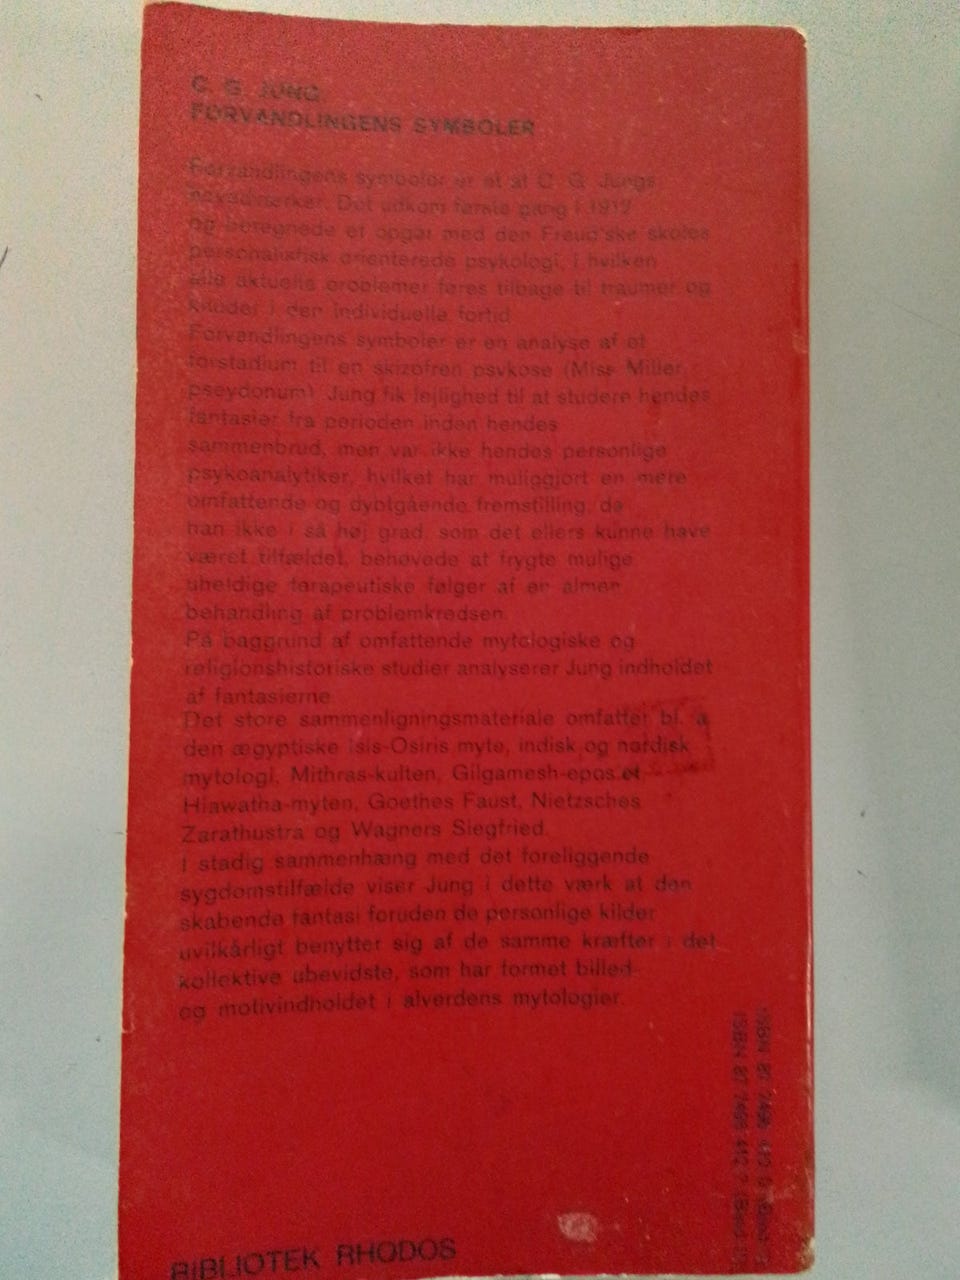 C. G. JUNG:
FORVANDLINGENS SYMBOLER
Forvandlingens symboler er et af C. G. Jungs
hovedværker. Det udkom første gang i 1912
og betegnede et opgør med den Freud'ske skoles
personalistisk orienterede psykologi, i hvilken
alle aktuelle problemer føres tilbage til traumer og
kilder i den individuelle fortid
Forvandlingens symboler er en analyse af et
forstadium til en skizofren psykose (Miss Miller,
pseydonum). Jung fik lejlighed til at studere hendes
fantasier fra perioden inden hendes
sammenbrud, men var ikke hendes personlige
psykoanalytiker, hvilket har muliggjort en mere
omfattende og dybtgående fremstilling, da
han ikke i så høj grad, som det ellers kunne have
været tilfældet, behøvede at frygte mulige
uheldige terapeutiske følger af en almen
behandling af problemkredsen.
På baggrund af omfattende mytologiske og
religionshistoriske studier analyserer Jung indholdet
af fantasierne.
Det store sammenligningsmateriale omfatter bl. a.
den ægyptiske Isis-Osiris myte, indisk og nordisk
mytologi, Mithras-kulten, Gilgamesh-epos et,
Hiawatha-myten, Goethes Faust, Nietzsches
Zarathustra og Wagners Siegfried.
I stadig sammenhæng med det foreliggende
sygdomstilfælde viser Jung i dette værk at den
skabende fantasi foruden de personlige kilder
uvilkårligt benytter sig af de samme kræfter i det
kollektive ubevidste, som har formet billed-
og motivindholdet i alverdens mytologier.
ISBN 87 7496
ISBN 87 7496 412 7
BIBLIOTEK RHODOS